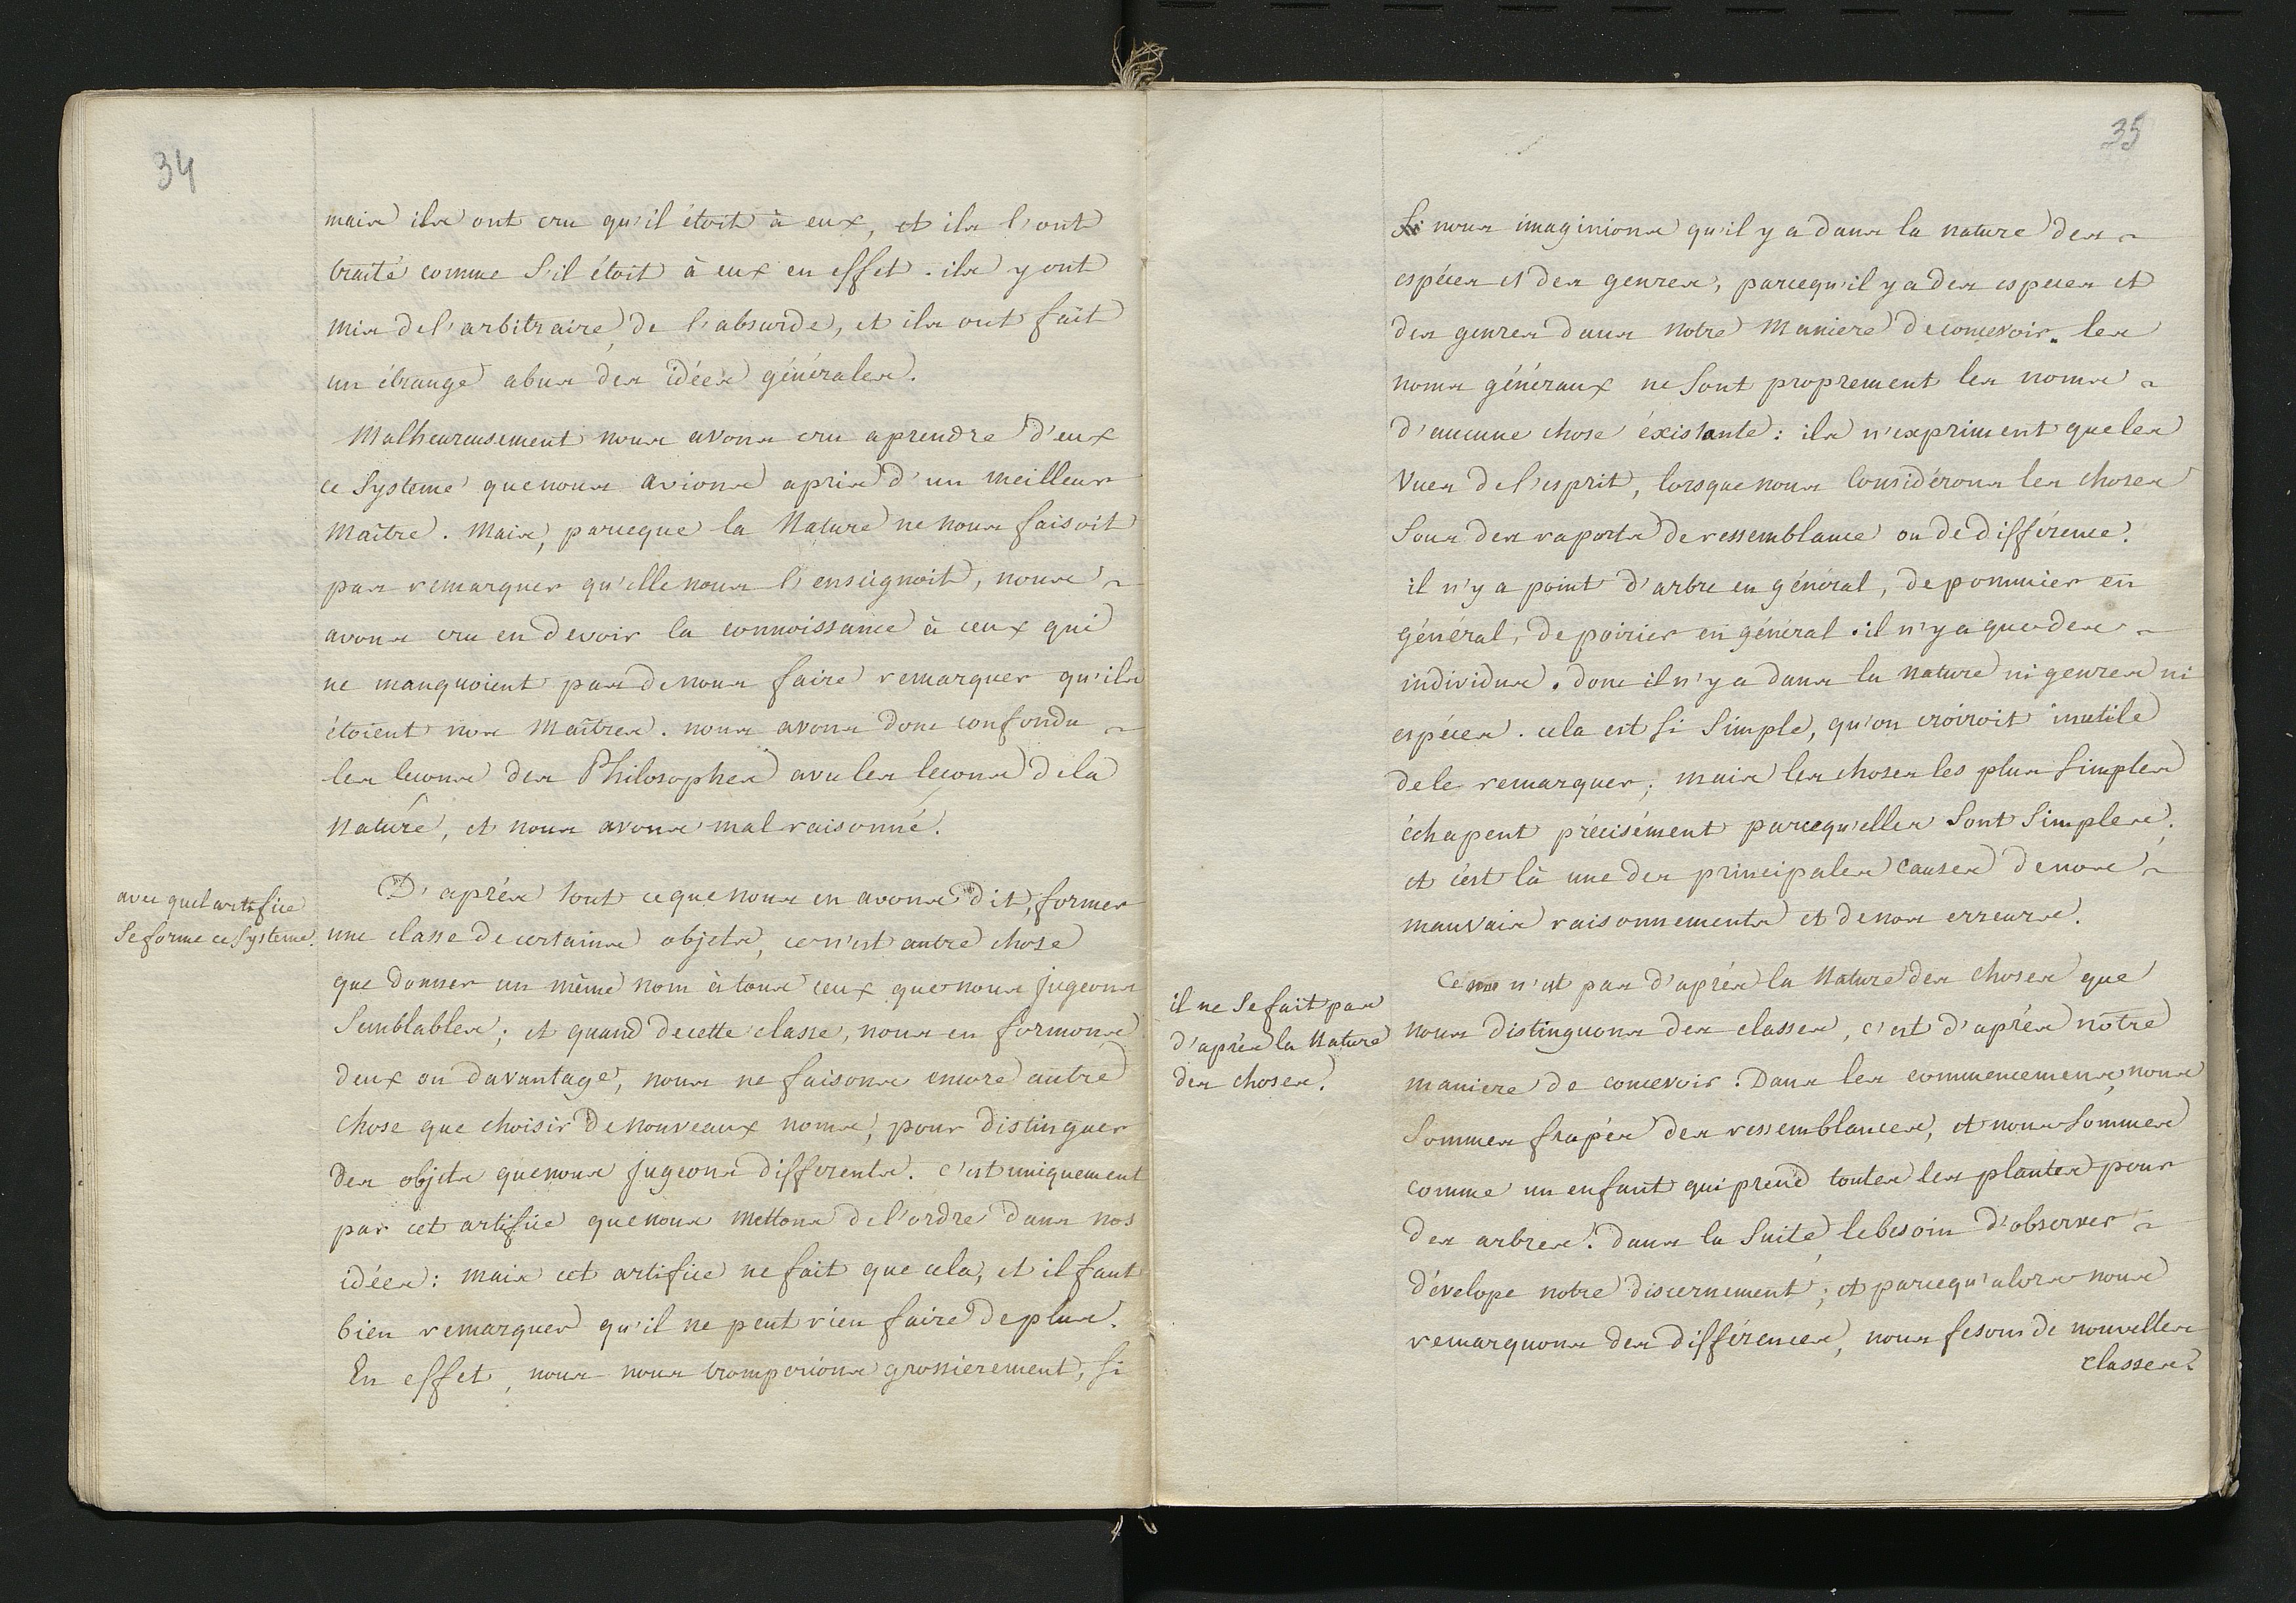 34
mais ils ont cru qu'il étoit à eux, et ils l'ont
traité comme S'il étoit à eux en effet. ils y ont
mis de l'arbitraire, de l'absurde, et ils ont fait
un étrange abus des idées générales.
Malheureusement nous avons cru aprendre d'eux
ce Systeme que nous avions apris d'un meilleur
Maître. Mais, parceque la Nature ne nous faisoit
pas remarquer qu'elle nous l'enseignoit, nous
avons cru en devoir la connoissance à ceux qui
ne manquoient pas de nous faire remarquer qu'ils
étoient nos Maîtres. nous avons donc confondu
les leçons des Philosophes avec les leçons de la
Nature, et nous avons mal raisonné.
avec quel artifice
Se forme ce Systeme.
D'après tout ce que nous en avons dit, former
une classe de certains objets, ce n'est autre chose
que donner un même nom à tous ceux que nous jugeons
Semblables; et quand de cette classe, nous en formons
deux ou davantage, nous ne faisons encore autre
chose que choisir de nouveaux noms, pour distinguer
des objets que nous jugeons differents. c'est uniquement
par cet artifice que nous mettons de l'ordre dans nos
idées: mais cet artifice ne fait que cela, et il faut
bien remarquer qu'il ne peut rien faire de plus.
En effet, nous nous tromperions grossierement, Si
35
Si nous imaginions qu'il y a dans la nature des
espéces et des genres, parcequ'il y a des especes et
des genres dans notre Maniere de concevoir. les
noms généraux ne Sont proprement les noms
d'aucune chose éxistante: ils n'expriment que les
Vues de l'esprit, lorsque nous Considérons les choses
Sous des raports de ressemblance ou de différence.
il n'y a point d'arbre en général, de pommier en
général, de poirier en général. il n'y a que des
individus. donc il n'y a dans la nature ni genres ni
espéces. cela est Si Simple, qu'on croiroit inutile
de le remarquer; mais les choses les plus Simples
échapent précisément parcequ'elles Sont Simples;
et c'est là une des principales causes de nos
mauvais raisonnements et de nos erreurs.
il ne Se fait pas
d'après la Nature
des choses.
Ce n'est pas d'après la Nature des choses que
nous distinguons des classes, c'est d'après nôtre
maniere de concevoir. Dans les commencemens, nous
Sommes frapés des ressemblances, et nous Sommes
comme un enfant qui prend toutes les plantes pour
des arbres. dans la Suite, le besoin d'observer
dévelope notre discernement; et parcequ'alors nous
remarquons des différences, nous fesons de nouvelles
classes.